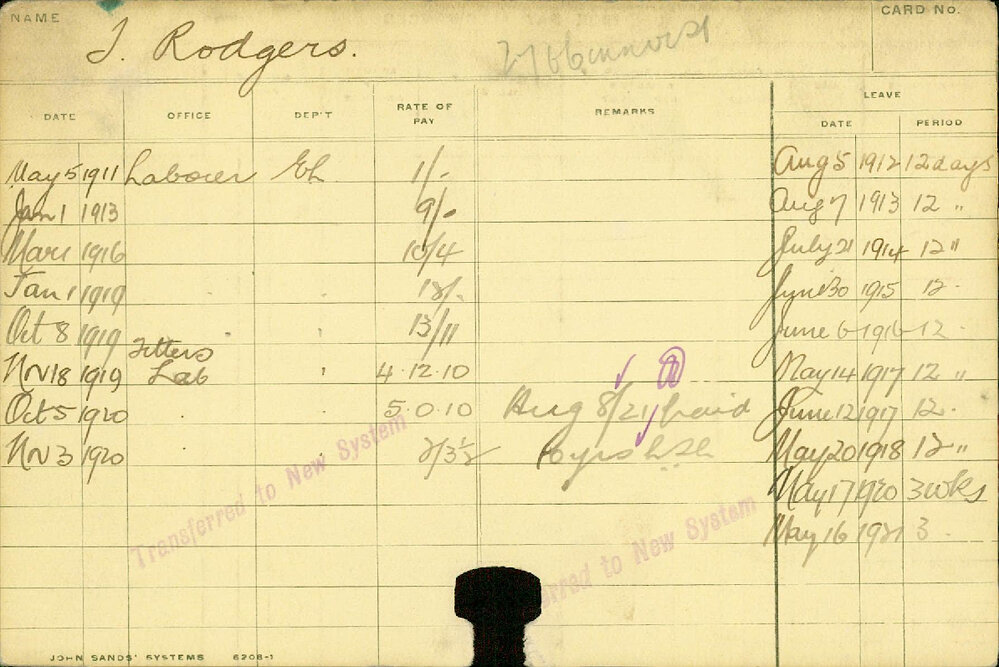 NAME
J. Rodgers.
CARD No.
DATE OFFICE DEP'T RATE OF PAY REMARKS LEAVE DATE PERIOD
May 5 1911 Labourer Eh 1/- Aug 5 1912 12 days
Jan 1 1913 9/- Aug 7 1913 12 "
Mar 1 1916 10/4 July 21 1914 12 "
Jan 1 1919 12/- June 30 1915 12 -
Oct 8 1919 13/11 June 6 1916 12 -
Fitters
Nov 18 1919 Lab 4.12.10 May 14 1917 12 "
Oct 5 1920 5.0.10 Aug 8/21 paid June 12 1917 12 -
Nov 3 1920 2/3½ May 20 1918 12 "
May 17 1920 3 wks
May 16 1921 3 -
Transferred to New System
rred to New System
JOHN SANDS' SYSTEMS 6208-1